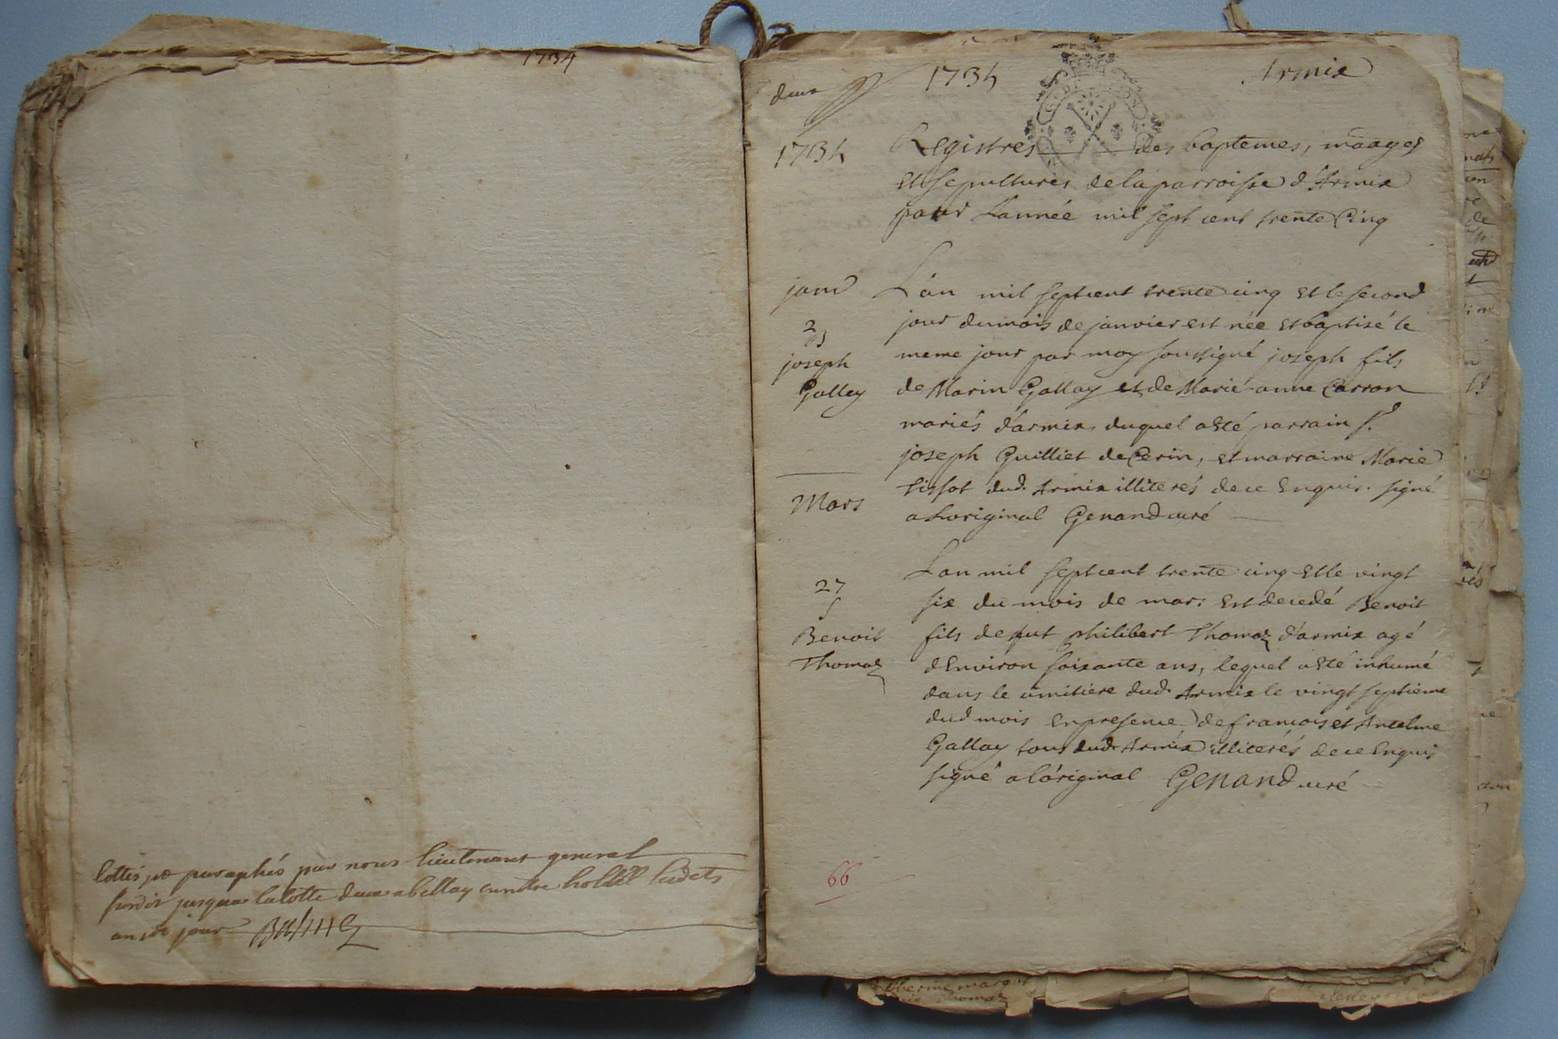 1734
Cottés et paraphés par nous lieutenant general
jusques la cotte deux a bellay en notre hotel lesdits
an et jour
deux 1735 Armix
1735 Registres des baptemes, mãages
Et sepultures de la parroisse d'Armix
pour L'année mil sept cent trente Cinq
janv
2
joseph
Gallay
L'an mil sept cent trente cinq et le second
jour du mois de janvier est née et baptisé le
meme jour par moy soussigné joseph fils
de Marin Gallay et de Marie-anne Carron
mariés d'armix duquel a eté parrain sr
joseph Guilliet de Cerin, et marraine Marie
Tissot dud. Armix illiterés de ce Enquis. signé
a Loriginal Genand curé
Mars
27
Benoit
Thomaz
L'an mil sept cent trente cinq et le vingt
six du mois de mars est decedé Benoit
fils de fut philibert Thomaz d'armix agé
d'Environ soixante ans, lequel a eté inhumé
dans le cimitiere dud. Armix le vingt septieme
dud mois En presence de francois et Antelme
Gallay tous dud. Armix illiterés de ce Enquis
signé a l'original Genand curé
66